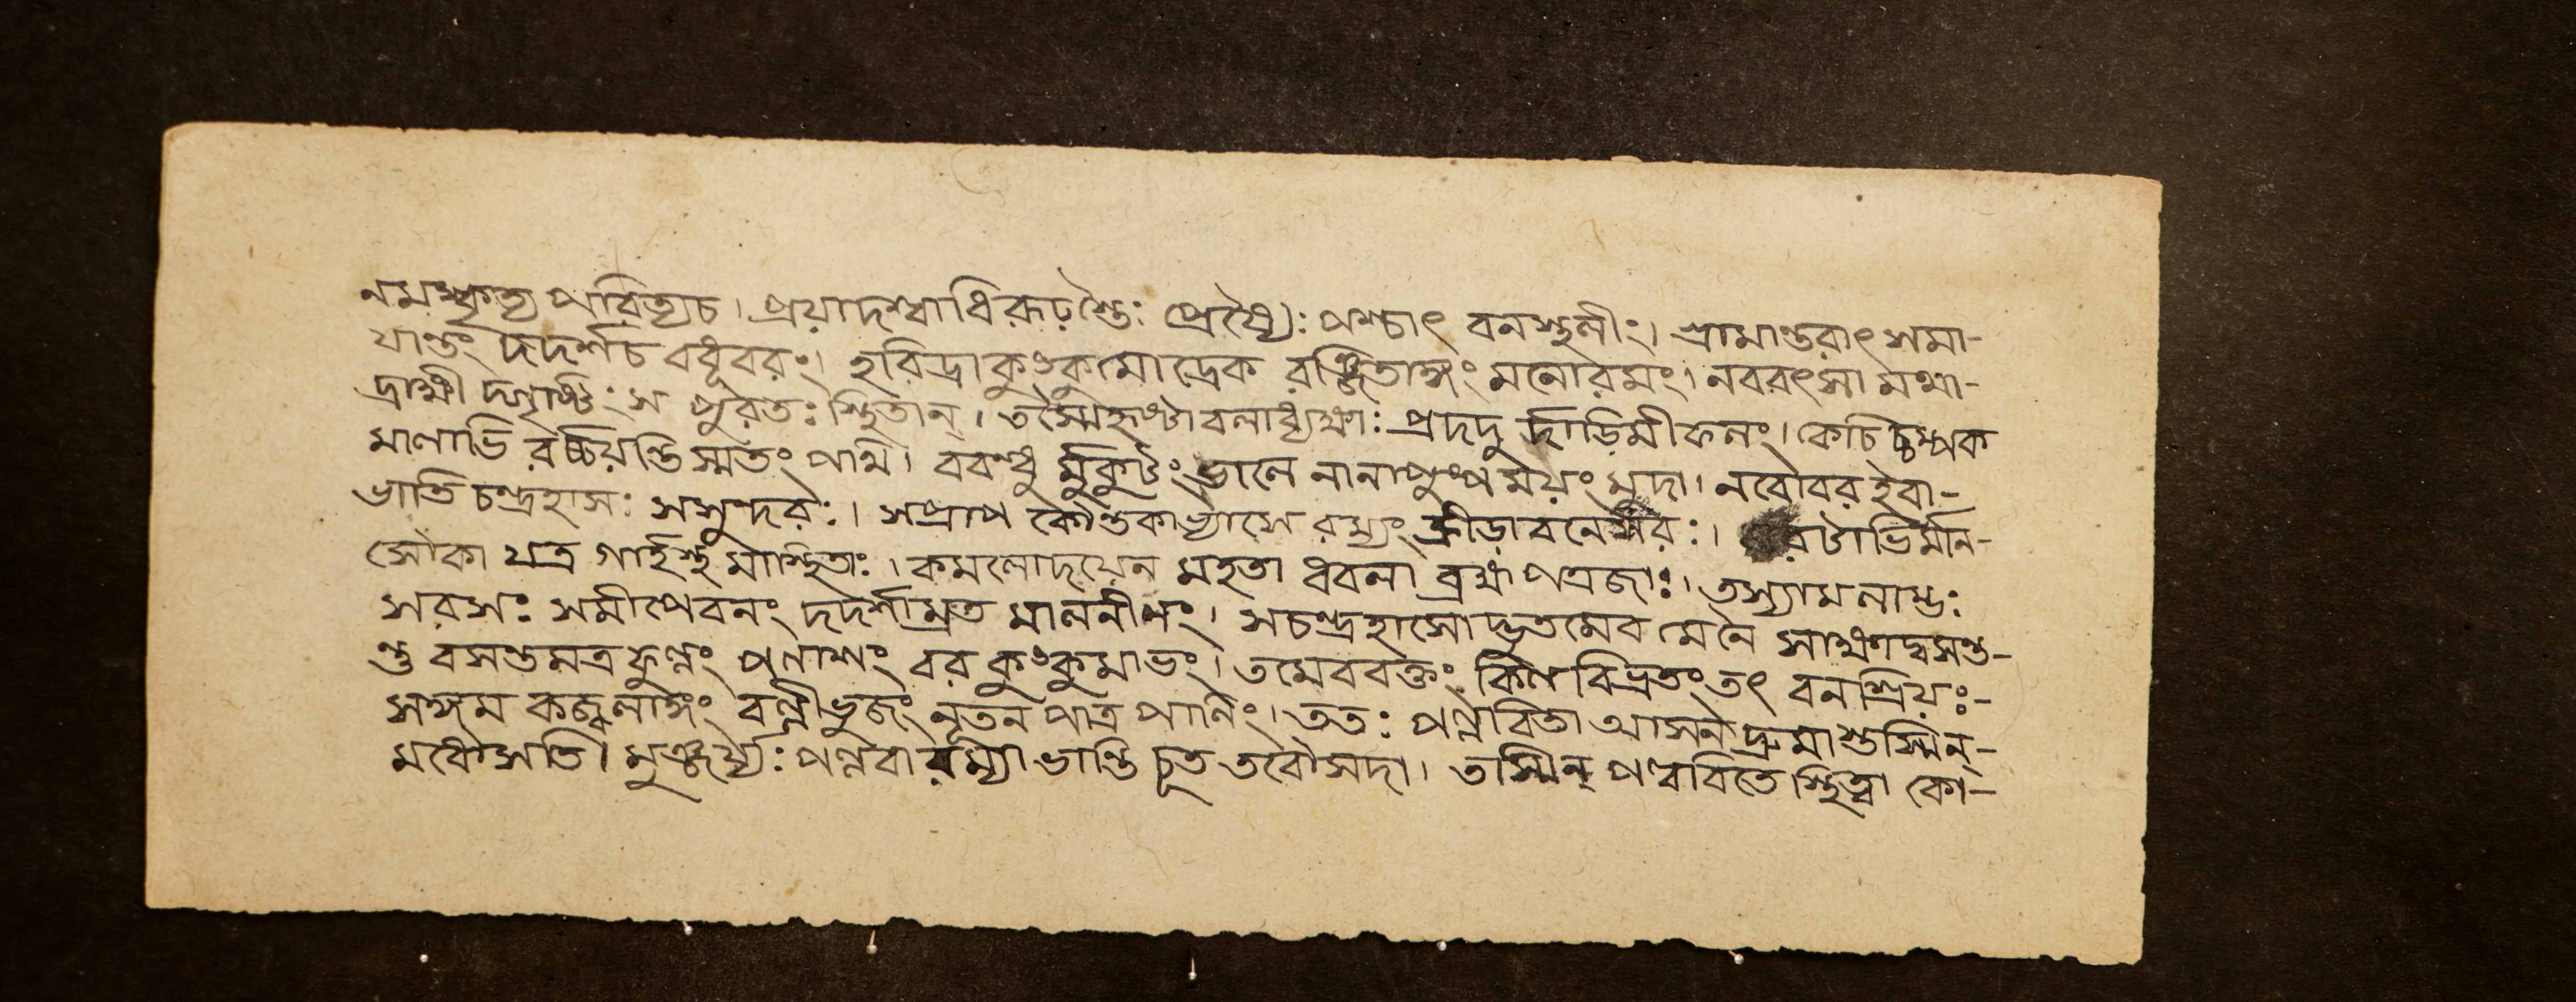 নমস্কৃত্য পরিত্যচ। প্রয়াদশ্বাধিরূঢ়স্তৈঃ প্রেষ্যৈঃ পশ্চাৎ বনস্থলীং। গ্রামান্তরাৎ সমা-
যান্তং দদর্শচ বধূবরং। হরিদ্রাকুংকুমোদ্রেক রঞ্জিতাঙ্গং মনোরমং। নবরংসা মথা-
দ্রাক্ষী দ্দৃষ্টঃ স পুরতঃ স্থিতান্। তস্মৈহৃষ্টাবলাধ্যক্ষাঃ প্রদদু র্দাড়িমীফলং। কেচি চ্চম্পক
মালাভি রচ্চয়ন্তি স্মতং পথি। ববন্ধু র্মুকুটং ভালে নানাপুষ্পময়ং মুদা। নবোবর ইবা-
ভাতি চন্দ্রহাসঃ সসুন্দরঃ। সপ্রাপ কৌন্তকাভ্যাসে রম্যং ক্রীড়াবনেসরঃ। রটাভির্মান-
সৌকা যত্র গার্হস্থ মাস্থিতাঃ। কমলোদয়েন মহতা ধবলা ব্রহ্মপত্রজাঃ। তস্যামলাম্ভঃ
সরসঃ সমীপেবনং দদর্শামৃত মাননীলং। সচন্দ্রহাসোদ্ভুতমেব মেনে সাক্ষাদ্বসন্ত-
ন্তু বসন্তমত্র ফুল্লং পলাশং বর কুংকুমাভং। তমেববক্তং কিল বিভ্রতং তং বনশ্রিয়ঃ-
সঙ্গম কজ্জ্বলাঙ্গং বল্লীভুজং নূতন পত্র পাণিং। অতঃ পল্লবিতা আসন্ দ্রুমাস্তস্মিন্-
মধৌসতি। মঞ্জর্য্যঃ পল্লবা রম্যা ভান্তি চূত তরৌসদা। তস্মিন্ পল্লবিতে স্থিত্বা কো-